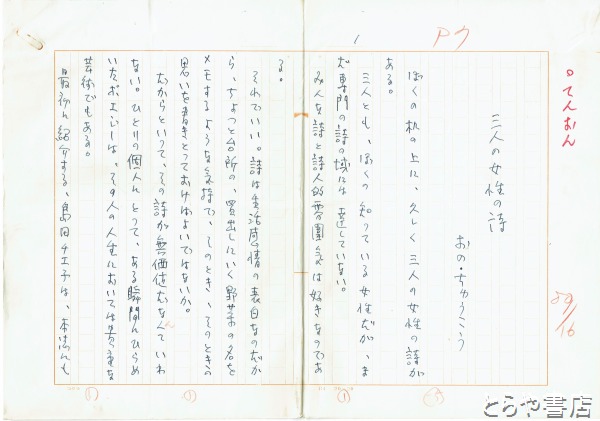 P7
1
○てんおん
89/16
三人の女性の詩
おの・ちゅうこう
ぼくの机の上に、久しく三人の女性の詩が
ある。
三人とも、ぼくの知っている女性だが、ま
だ専門の詩の域には達していない。
みんな詩と詩人的雰囲気は好きなのであ
る。
それでいい。詩は生活感情の表白なのだか
ら、ちょっと台所の、買出しにいく野菜の名を
メモするような気持で、そのとき、そのときの
思いを書きとっておけばよいではないか。
だからといって、その詩が無価値だなんていわ
ない。ひとりの個人にとって、ある瞬間にひらめ
いたポエジーは、その人の人生においては貴重な
芸術でもある。
最初に紹介する、島田チエ子は、本誌にも
とらや書店